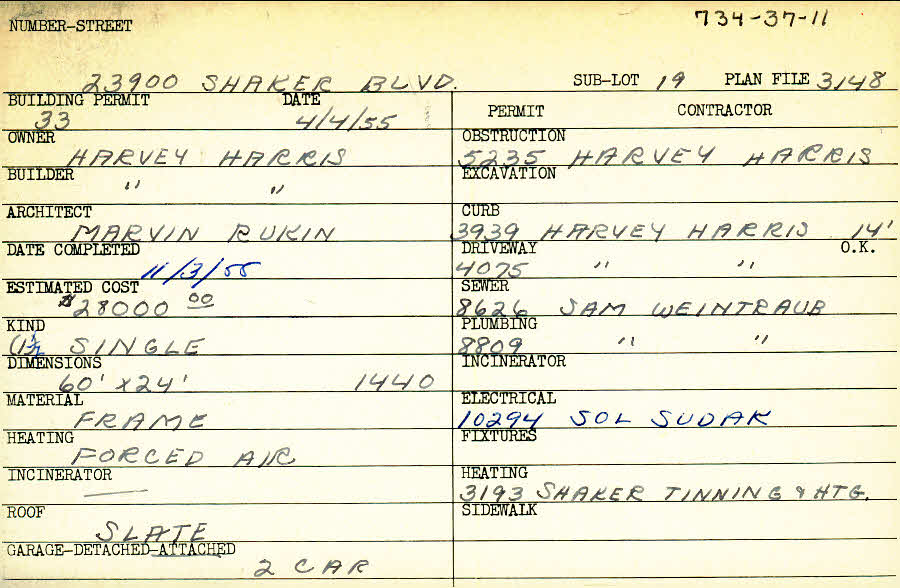 734-37-11
NUMBER-STREET
23900 SHAKER BLVD. SUB-LOT 19 PLAN FILE 3148
BUILDING PERMIT DATE
33 4/4/55
OWNER
HARVEY HARRIS
BUILDER
" "
ARCHITECT
MARVIN RUKIN
DATE COMPLETED
11/3/55
ESTIMATED COST
$28000 00
KIND
(1½ SINGLE
DIMENSIONS
60' X 24' 1440
MATERIAL
FRAME
HEATING
FORCED AIR
INCINERATOR
—
ROOF
SLATE
GARAGE-DETACHED-ATTACHED
2 CAR
PERMIT CONTRACTOR
OBSTRUCTION
5235 HARVEY HARRIS
EXCAVATION
CURB
3939 HARVEY HARRIS 14'
DRIVEWAY O.K.
4075 " "
SEWER
8626 SAM WEINTRAUB
PLUMBING
8809 " "
INCINERATOR
ELECTRICAL
10294 SOL SUDAK
FIXTURES
HEATING
3193 SHAKER TINNING & HTG.
SIDEWALK